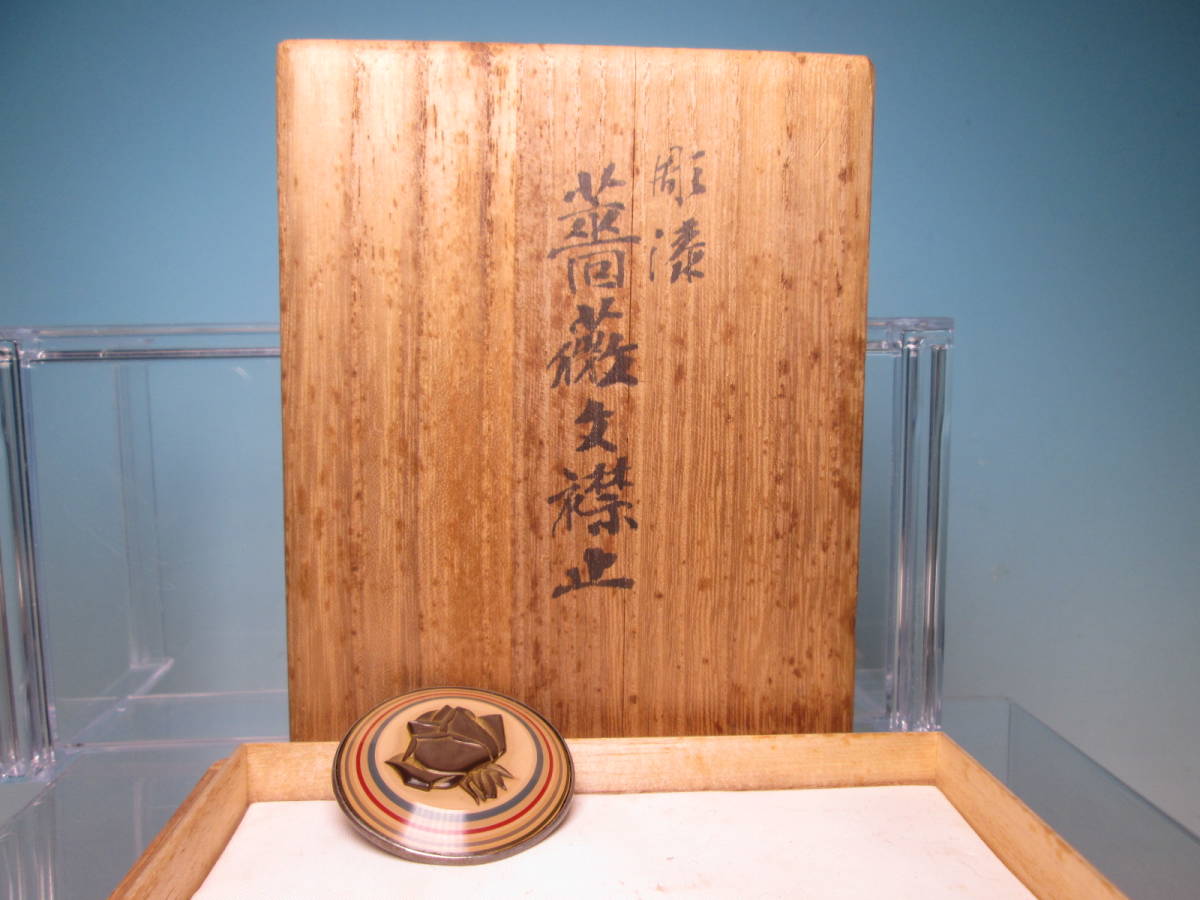 彫漆
薔薇文襟止